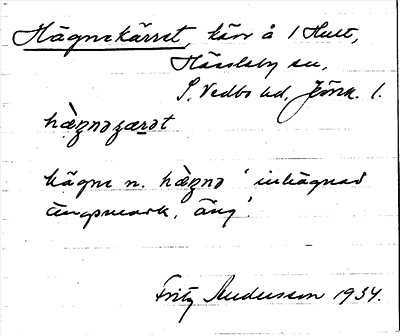 Hägnekärret, kärr å 1 Hult,
Hässleby sn,
S. Vedbo hd, Jönk. l.
hæ̀ŋnəʒærət
hägne n. hæ̀ŋnə 'inhägnad
ängsmark, äng'.
Fritz Andersson 1934.